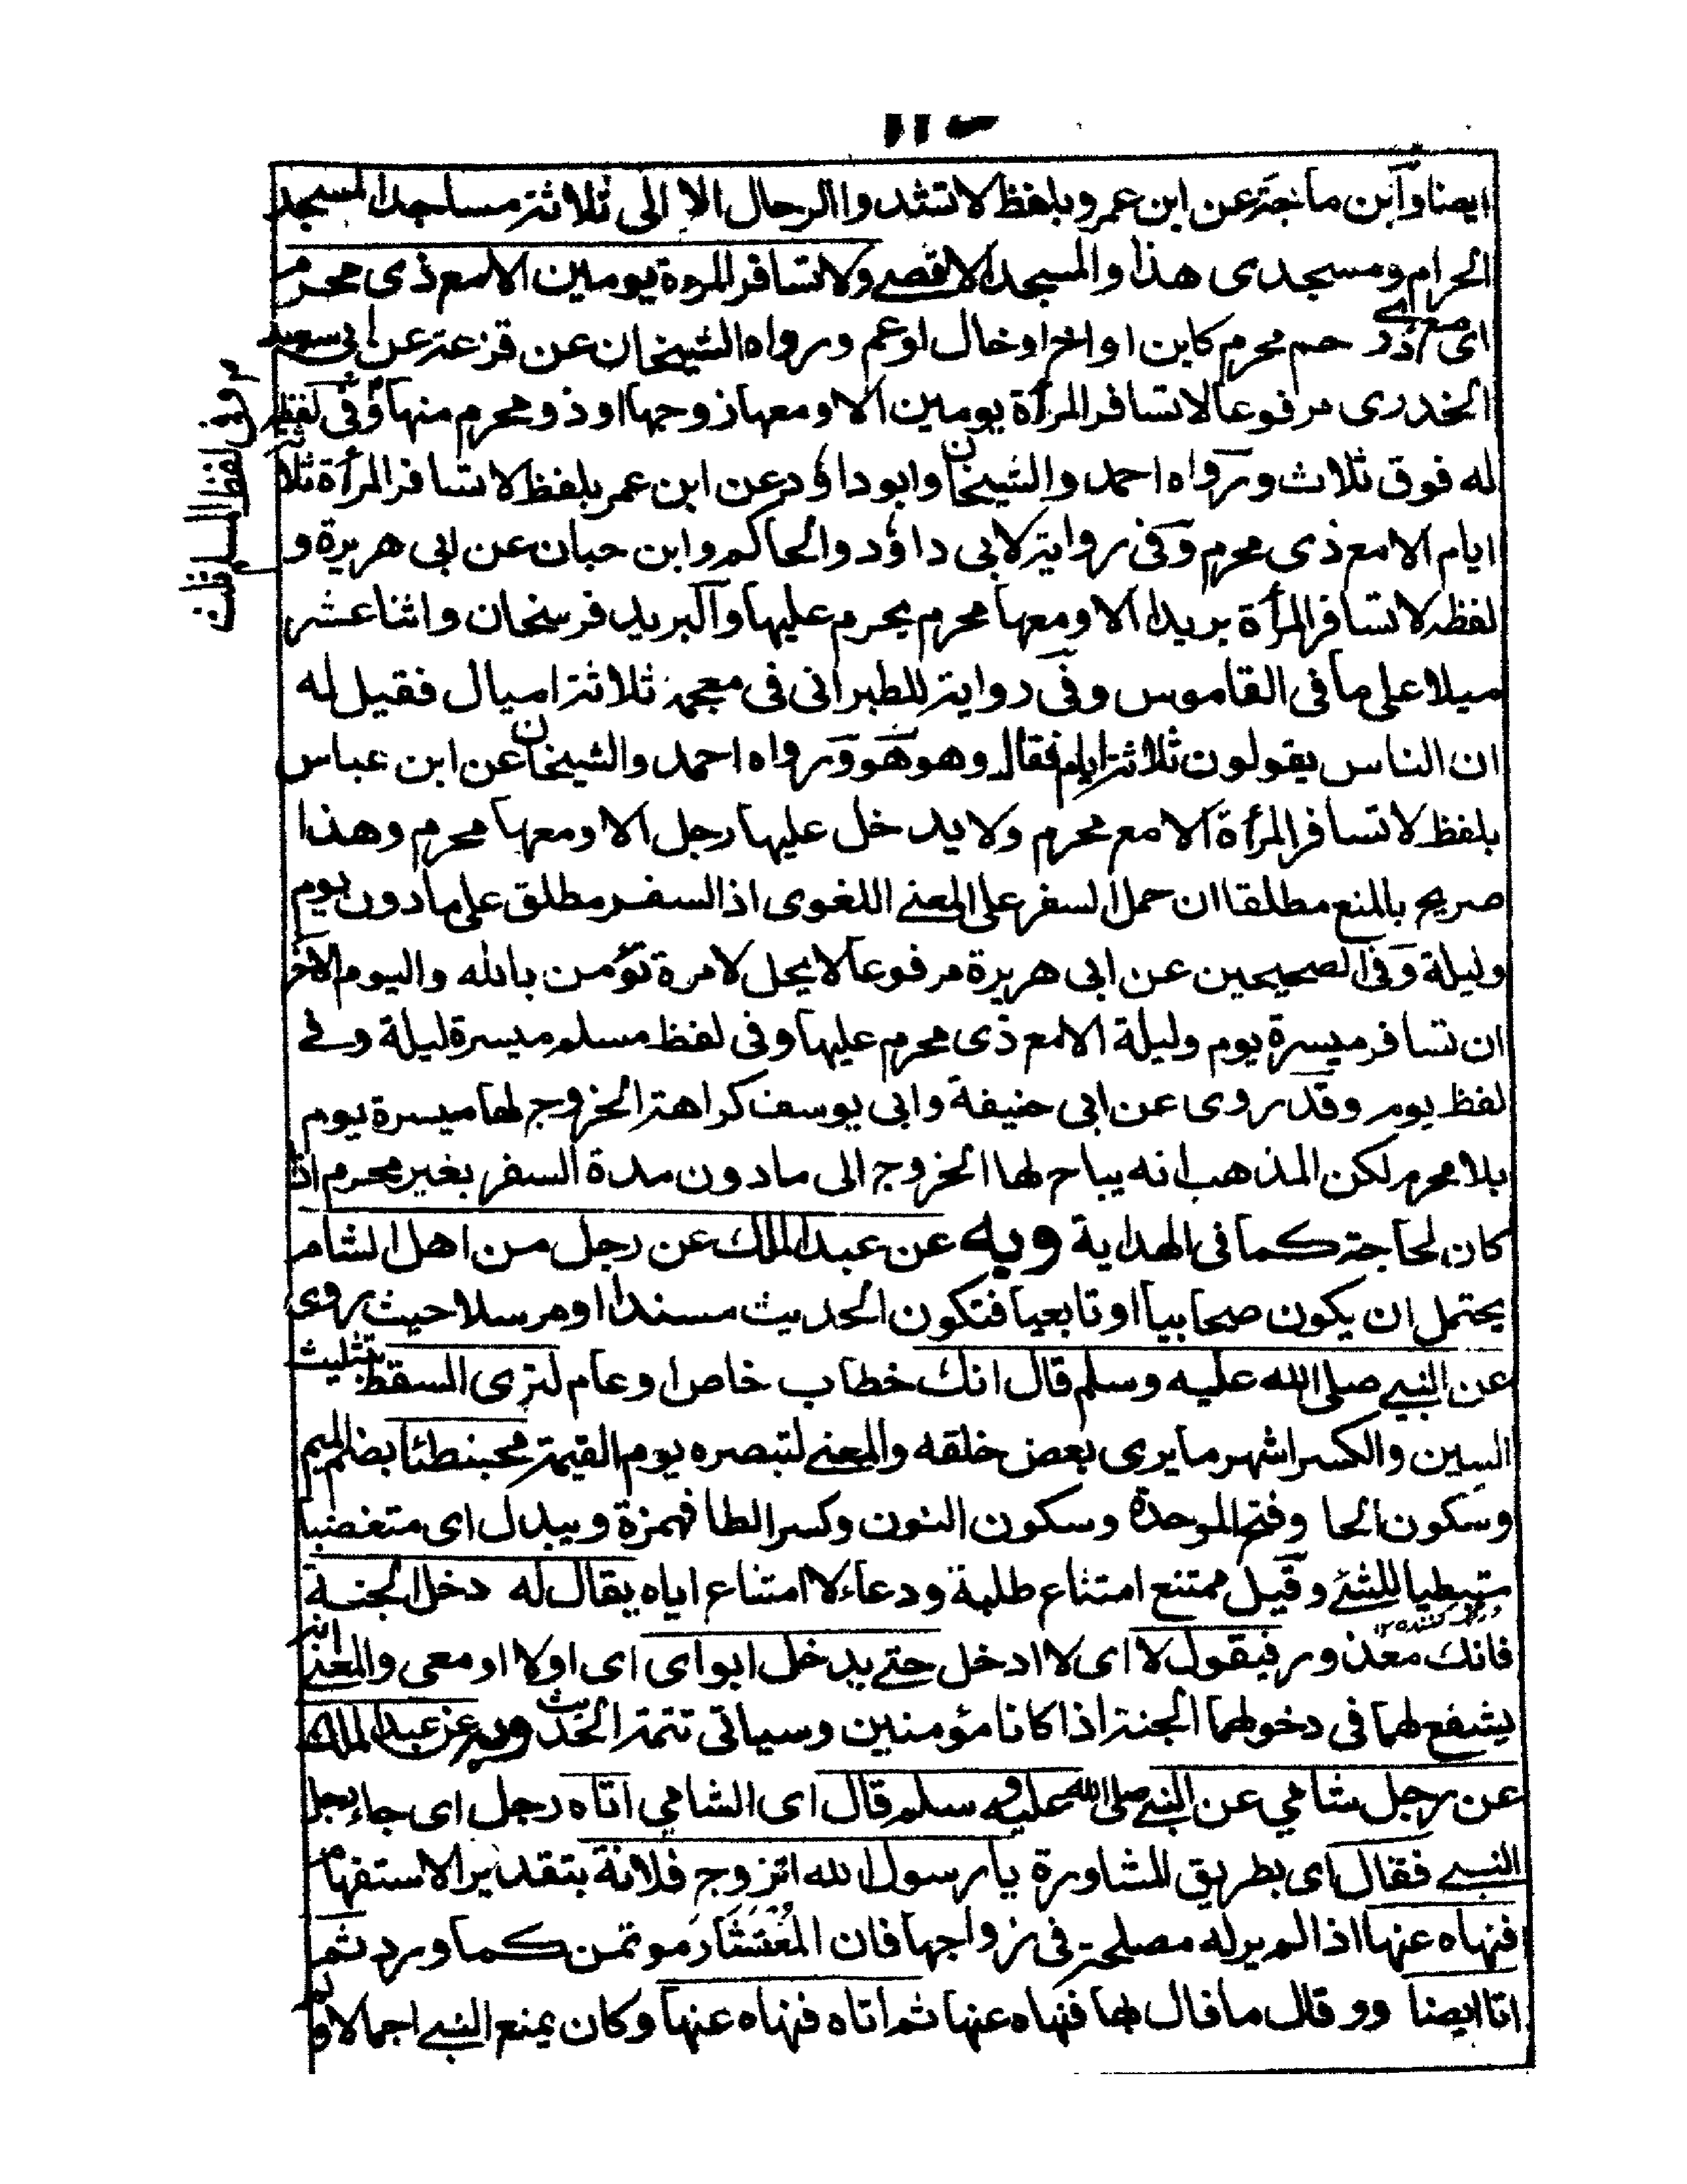 ايضا وابن ماجة عن ابن عمر وبلفظ لا تشدوا الرحال الا الى ثلاثة مساجد المسجد
الحرام ومسجدى هذا والمسجد الاقصے ولا تسافر المرءة يومين الا مع ذى محرم
اى مع ذى رحم محرم كابن او اخ او خال او عم ورواه الشيخان عن قزعة عن ابى سعيد
الخدرى مرفوعا لا تسافر المرأة يومين الا ومعها زوجها او ذو محرم منها وفى لفظ
له فوق ثلاث ورواه احمد والشيخان وابو داؤد عن ابن عمر بلفظ لا تسافر المرأة ثلاثة
ايام الا مع ذى محرم وفى رواية لابى داؤد والحاكم وابن حبان عن ابى هريرة و
لفظه لا تسافر المرأة بريدا الا ومعها محرم يحرم عليها والبريد فرسخان واثنا عشر
ميلا على ما فى القاموس وفى رواية للطبرانى فى معجمه ثلاثة اميال فقيل له
ان الناس يقولون ثلاثة ايام فقال وهو هو ورواه احمد والشيخان عن ابن عباس
بلفظ لا تسافر المرأة الا مع محرم ولا يدخل عليها رجل الا ومعها محرم وهذا
صريح بالمنع مطلقا ان حمل السفر على المعنے اللغوى اذ السفر مطلق على ما دون يوم
وليلة وفى الصحيحين عن ابى هريرة مرفوعا لا يحل لامرة تؤمن بالله واليوم الآخر
ان تسافر ميسرة يوم وليلة الا مع ذى محرم عليها وفى لفظ مسلم ميسرة ليلة وفے
لفظ يوم وقد روى عن ابى حنيفة وابى يوسف كراهة الخروج لها ميسرة يوم
بلا محرم لكن المذهب انه يباح لها الخروج الى ما دون مدة السفر بغير محرم اذا
كان لحاجة كما فى الهداية وبه عن عبد الملك عن رجل من اهل الشام
يحتمل ان يكون صحابيا او تابعيا فتكون الحديث مسندا او مرسلا حيث روى
عن النبے صلى الله عليه وسلم قال انك خطاب خاص او عام لترى السقط بتثليث
السين والكسر اشهر ما يرى بعض خلقه والمعنے لتبصره يوم القيمة محبنطئا بضم الميم
وسكون الحا وفتح الموحدة وسكون النون وكسر الطا فهمزة ويبدل اى متغضبا
ستبطيا للشئ وقيل ممتنع امتناع طلبة ودعاء لا امتناع اياه يقال له دخل الجنة
فانك معذور فيقول لا اى لا ادخل حتے يدخل ابواى اى اولا او معى والمعنے انه
يشفع لهما فى دخولهما الجنة اذا كانا مؤمنين وسياتى تتمة الحديث وبه عن عبد الملك
عن رجل شامي عن النبے صلى الله عليه وسلم قال اى الشامي اتاه رجل اى جاء رجل
النبے فقال اى بطريق المشاورة يا رسول الله اتزوج فلانة بتقدير الاستفهام
فنهاه عنها اذ الم ير له مصلحة فى زواجها فان المستشار موتمن كما ورد ثم
اتا ايضا وو قال ما قال لها فنهاه عنها ثم اتاه فنهاه عنها وكان يمنع النبے اجمالا و
وفى لفظ لمسلم ثلث